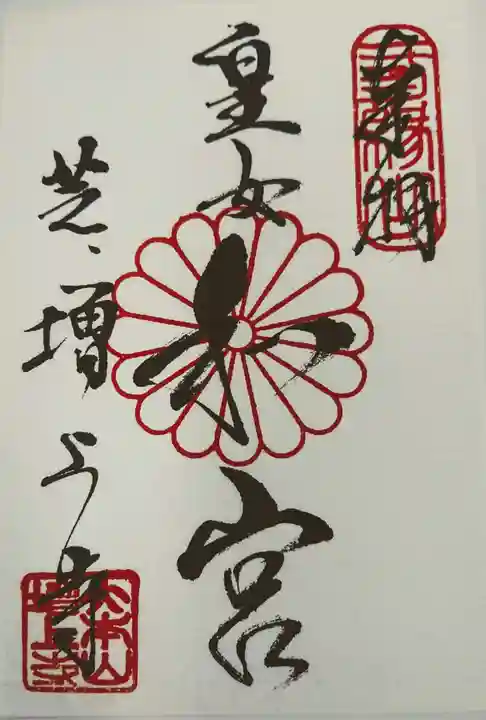 奉拝
皇女和宮
芝 増上寺